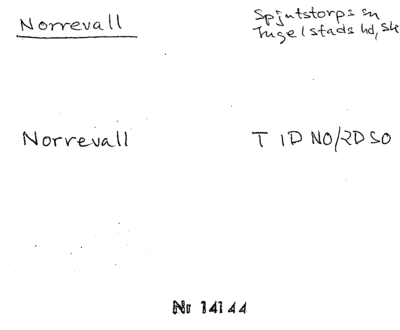 Norrevall
Spjutstorps sn
Ingelstads hd, Sk
Norrevall
T 1D NO/2D SO
Nr 14144